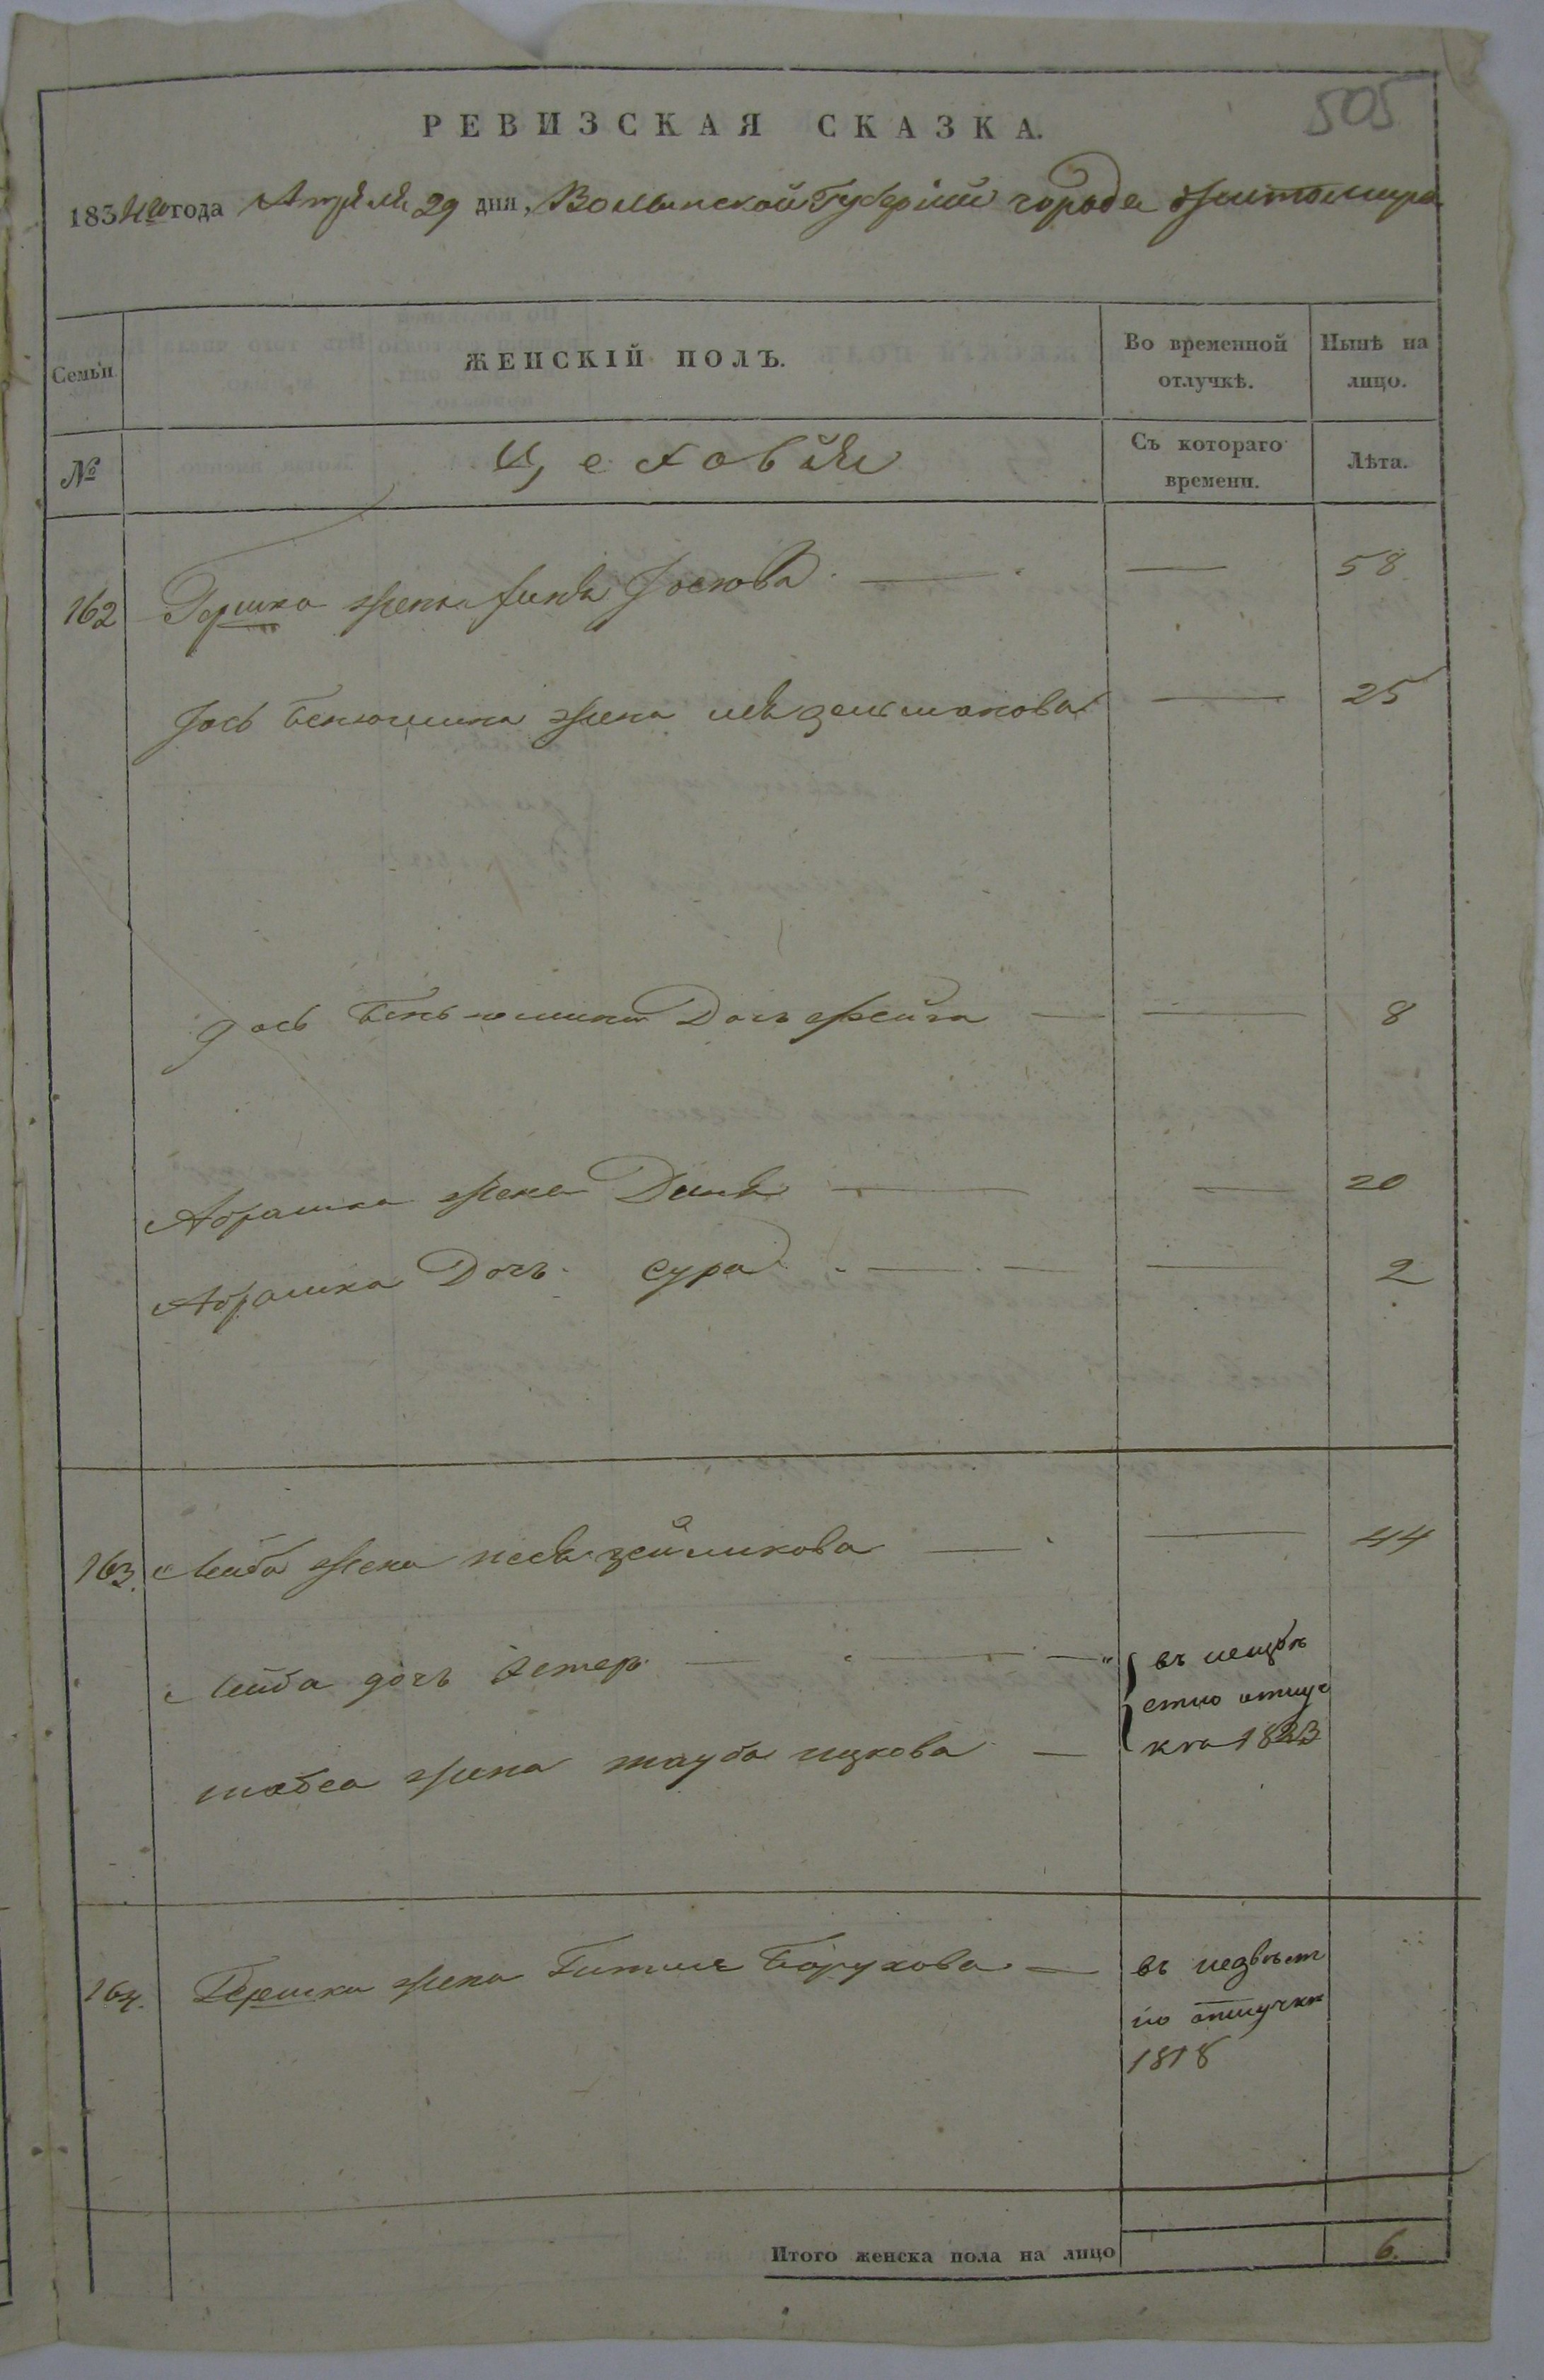 505
РЕВИЗСКАЯ СКАЗКА.
1834го года Апреля 29 дня, Волынской Губернии города Житомира
Семьи. ЖЕНСКІЙ ПОЛЪ. Во временной отлучкѣ. Нынѣ на лицо.
№ Цеховыя Съ котораго времени. Лѣта.
162 Гершка жена Іоскова — — 58
Іось Бенюмина жена — 25
Іось Беньюмина Дочь Фейга — — 8
Абрашка жена — — 20
Абрашка Дочь Сура — — — 2
163. Лейба жена Зеймикова — — 44
Лейба дочь Естер — — —
въ неизве
стно отлуч
ки 1823
шабса жена тауба ицкова —
164. Гершки жена Борухова —
въ неизвест
но отлучки
1818
Итого женска пола на лицо 6.